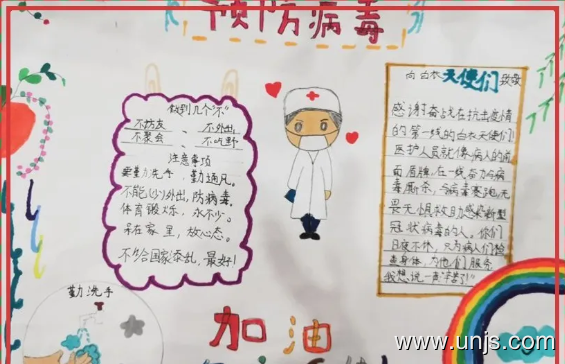 预防病毒
做到几个"不"
不访友、不外出
不聚会、不吃野
注意事项
要勤洗手,勤通风。
不能 外出,防病毒,
体育锻炼,永不少。
呆在家里,放心态。
不给国家添乱,最好!
向白衣天使们致敬
感谢奋战在抗击疫情
的第一线的白衣天使们!
医护人员就像病人的
在一线奋力与病
毒厮杀,与病毒赛跑,无
畏无惧救助感染新型
冠状病毒的人。你们
日夜不休,只为病人们检
查身体,为他们服务
我想说一声"辛苦了!"
勤洗手
加油
www.unjs.com